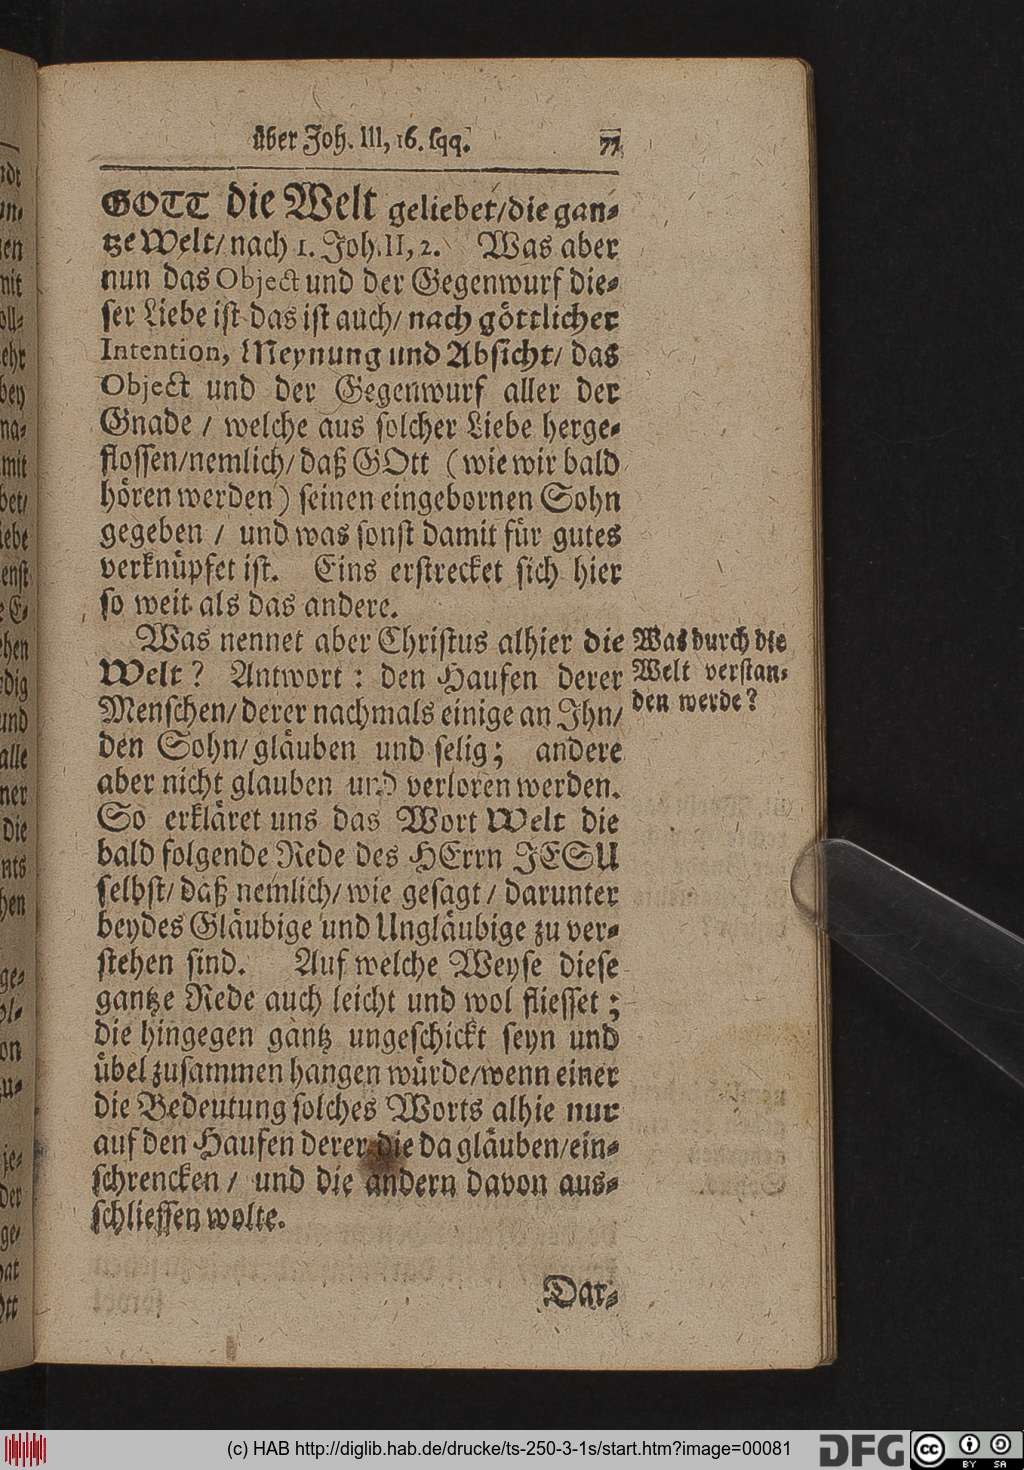 über Joh. III, 16. sqq. 77
GOTT die Welt geliebet/die gan-
tze Welt/ nach 1. Joh. II, 2. Was aber
nun das Object und der Gegenwurf die-
ser Liebe ist das ist auch/ nach göttlicher
Intention, Meynung und Absicht/ das
Object und der Gegenwurf aller der
Gnade / welche aus solcher Liebe herge-
flossen/nemlich/ daß GOtt (wie wir bald
hören werden) seinen eingebornen Sohn
gegeben / und was sonst damit für gutes
verknüpfet ist. Eins erstrecket sich hier
so weit als das andere.
Was nennet aber Christus alhier die
Welt? Antwort: den Haufen derer
Menschen/ derer nachmals einige an Ihn/
den Sohn/ gläuben und selig; andere
aber nicht glauben und verloren werden.
So erkläret uns das Wort Welt die
bald folgende Rede des HErrn JESU
selbst/ daß nemlich/ wie gesagt / darunter
beydes Gläubige und Ungläubige zu ver-
stehen sind. Auf welche Weyse diese
gantze Rede auch leicht und wol fliesset;
die hingegen gantz ungeschickt seyn und
übel zusammen hangen würde/wenn einer
die Bedeutung solches Worts alhie nur
auf den Haufen derer die da gläuben/ein-
schrencken / und die andern davon aus-
schliessen wolte.
Dar-
Was durch die
Welt verstan-
den werde?
(c) HAB http://diglib.hab.de/drucke/ts-250-3-1s/start.htm?image=00081
DFG
cc BY SA